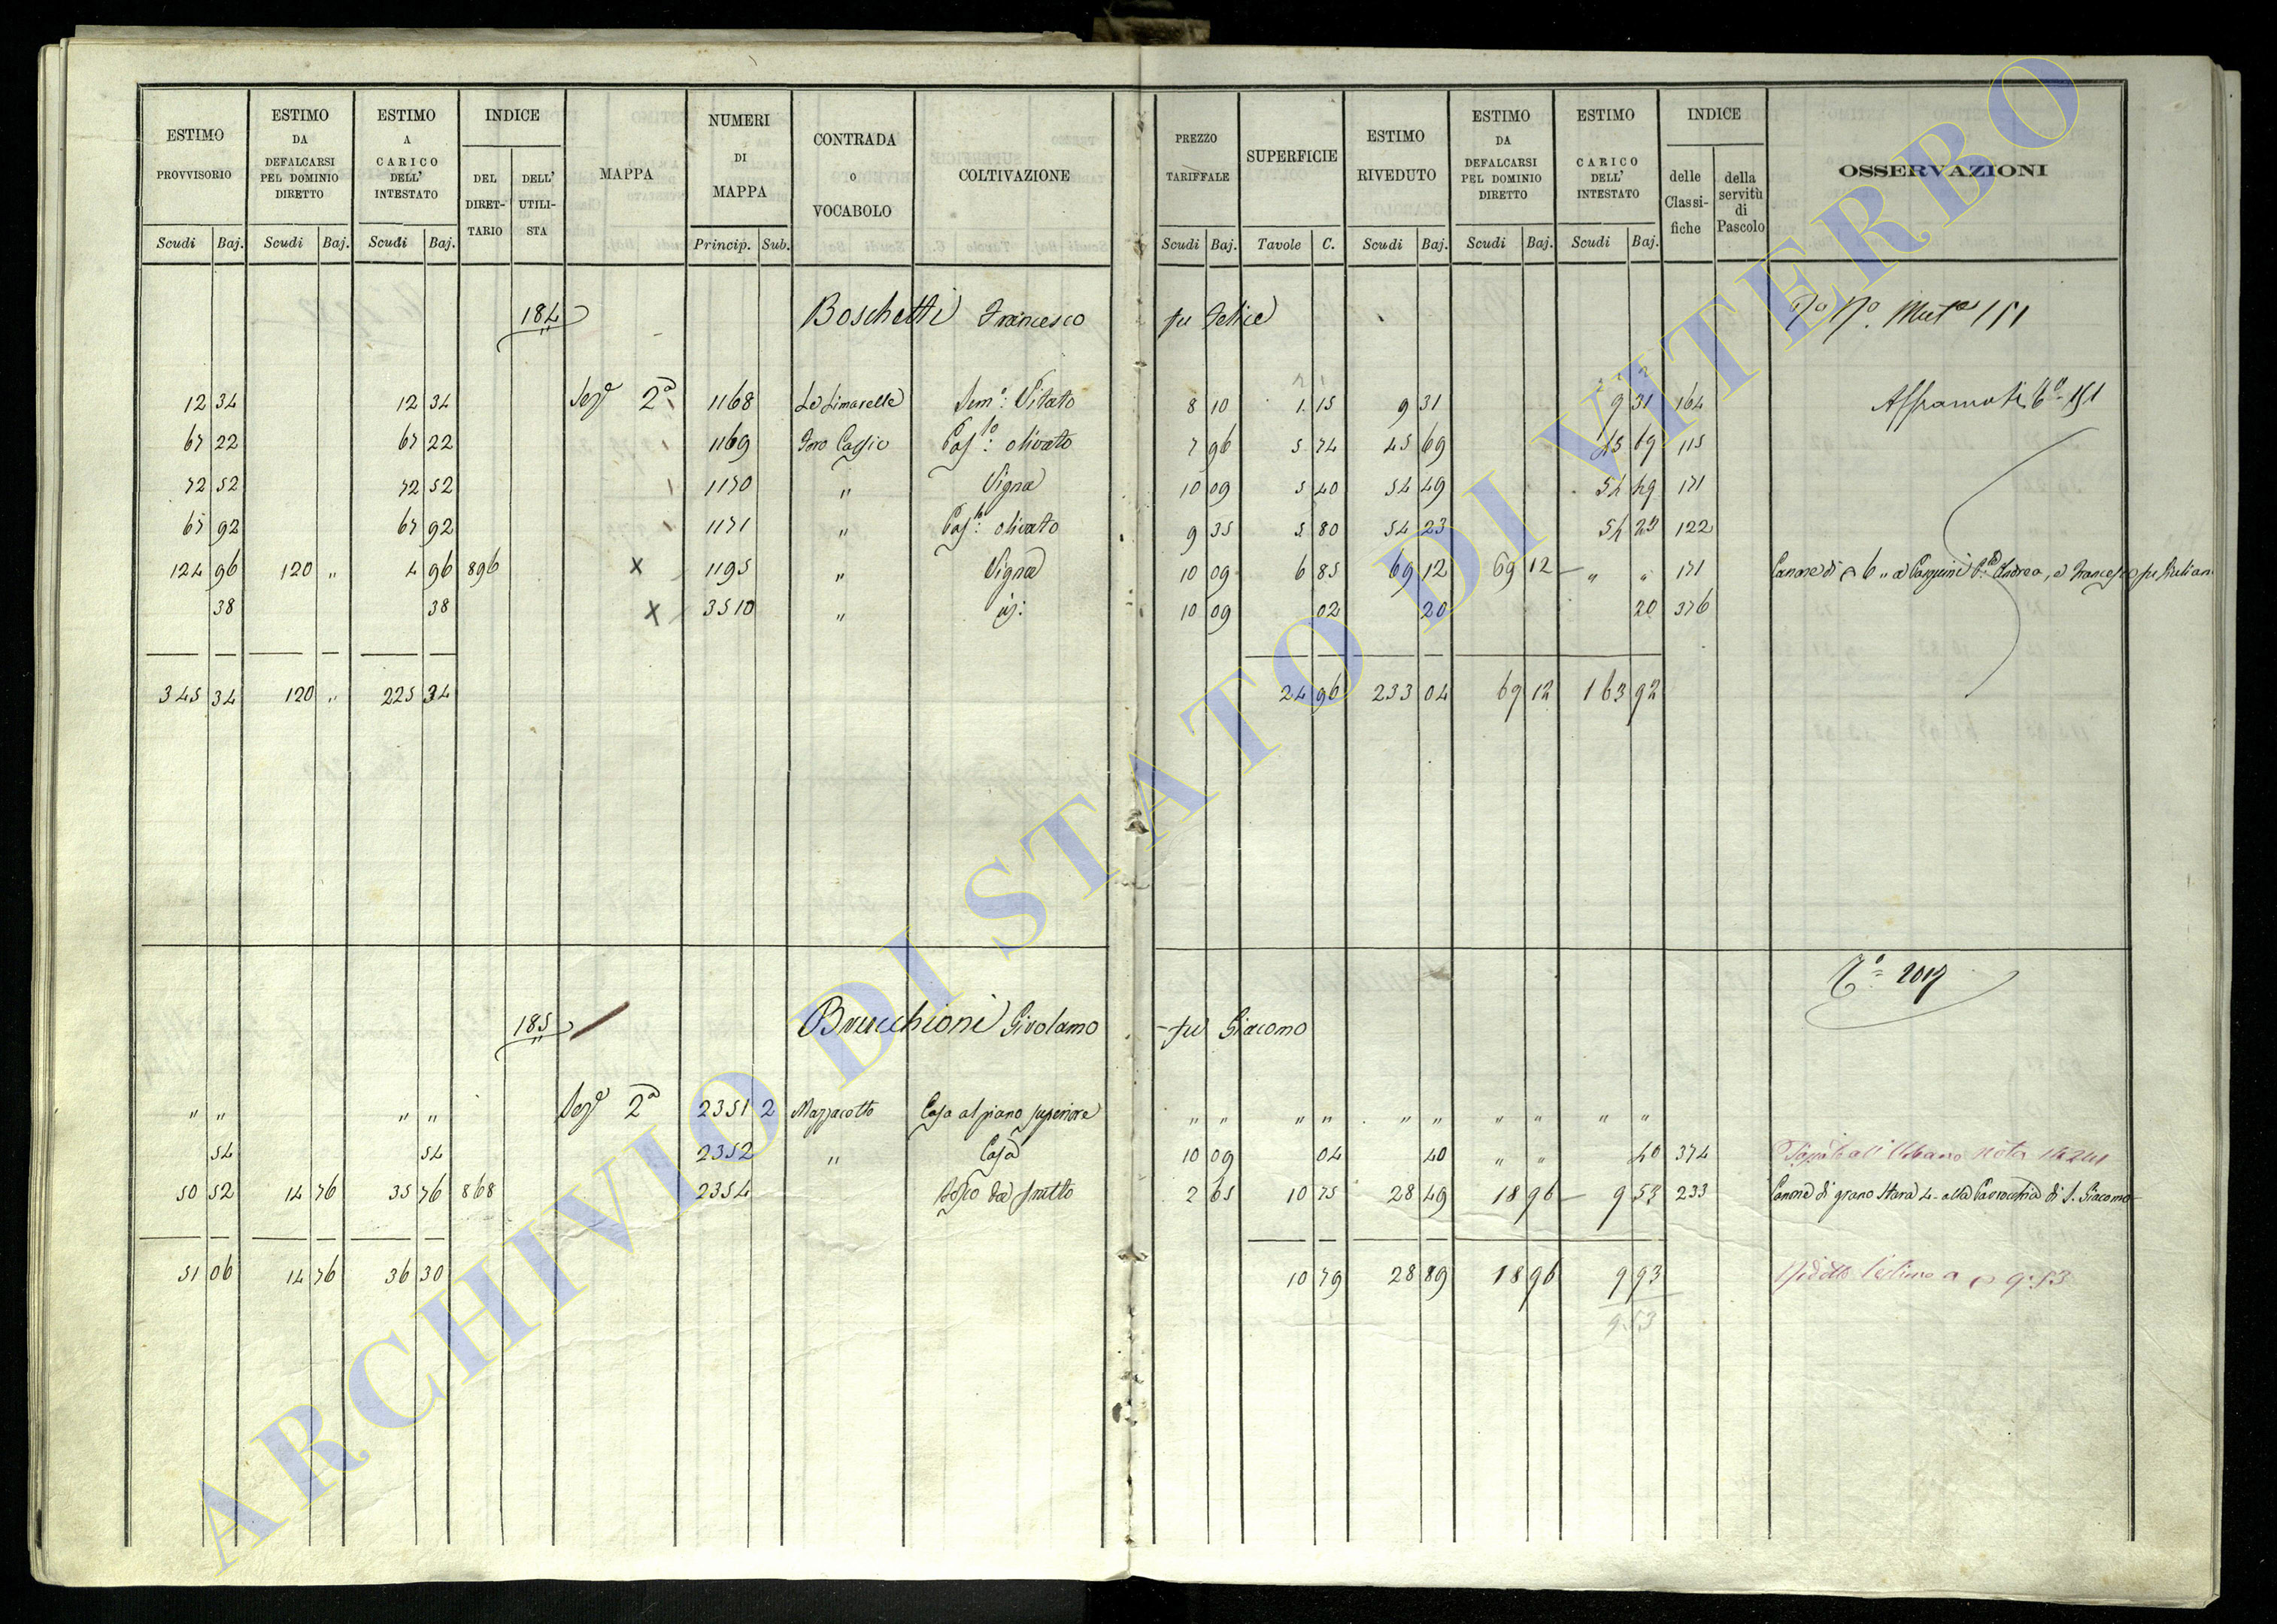 ESTIMO PROVVISORIO
ESTIMO DA DEFALCARSI PEL DOMINIO DIRETTO
ESTIMO A CARICO DELL' INTESTATO
INDICE
DEL DIRET-TARIO
DELL' UTILI-STA
MAPPA
NUMERI DI MAPPA
CONTRADA o VOCABOLO
COLTIVAZIONE
PREZZO TARIFFALE
SUPERFICIE
ESTIMO RIVEDUTO
ESTIMO DA DEFALCARSI PEL DOMINIO DIRETTO
ESTIMO CARICO DELL' INTESTATO
INDICE
delle Classi-fiche
della servitù di Pascolo
OSSERVAZIONI
Scudi Baj. Scudi Baj. Scudi Baj. Princip. Sub. Scudi Baj. Tavole C. Scudi Baj. Scudi Baj. Scudi Baj.
184 Boschetti Francesco fu Felice 151
12 34 12 34 Sez.e 2a 1168 Le Simarelle Sem.o Vitato 8 10 1 15 9 31 9 31 164 151
67 22 67 22 1169 Foro Cassio Pas.to olivato 7 96 5 74 45 69 45 69 115
72 52 72 52 1170 " Vigna 10 09 5 40 54 49 54 49 171
67 92 67 92 1171 " Pas.to olivato 9 35 5 80 54 23 54 23 122
124 96 120 " 4 96 896 x 1195 " Vigna 10 09 6 85 69 12 69 12 " " 171 Canone di 6 " a Andrea, e Francesco fu
38 38 x 3510 " id: 10 09 02 20 20 376
345 34 120 " 225 34 24 96 233 04 69 12 163 92
2017
185 Brucchioni Girolamo fu Giacomo
" " " " Sez.e 2a 2351 2 Mazzacotto Casa al piano superiore " " " " " " " " " "
54 54 2352 " Casa 10 09 04 40 " " 40 374
50 52 14 76 35 76 868 2354 bosco da frutto 2 65 10 75 28 49 18 96 9 53 233 Canone di grano Stara 4 alla Parrocchia di S. Giacomo
51 06 14 76 36 30 10 79 28 89 18 96 9 93 Ridotto l'estimo a 9.53
9.53
ARCHIVIO DI STATO DI VITERBO